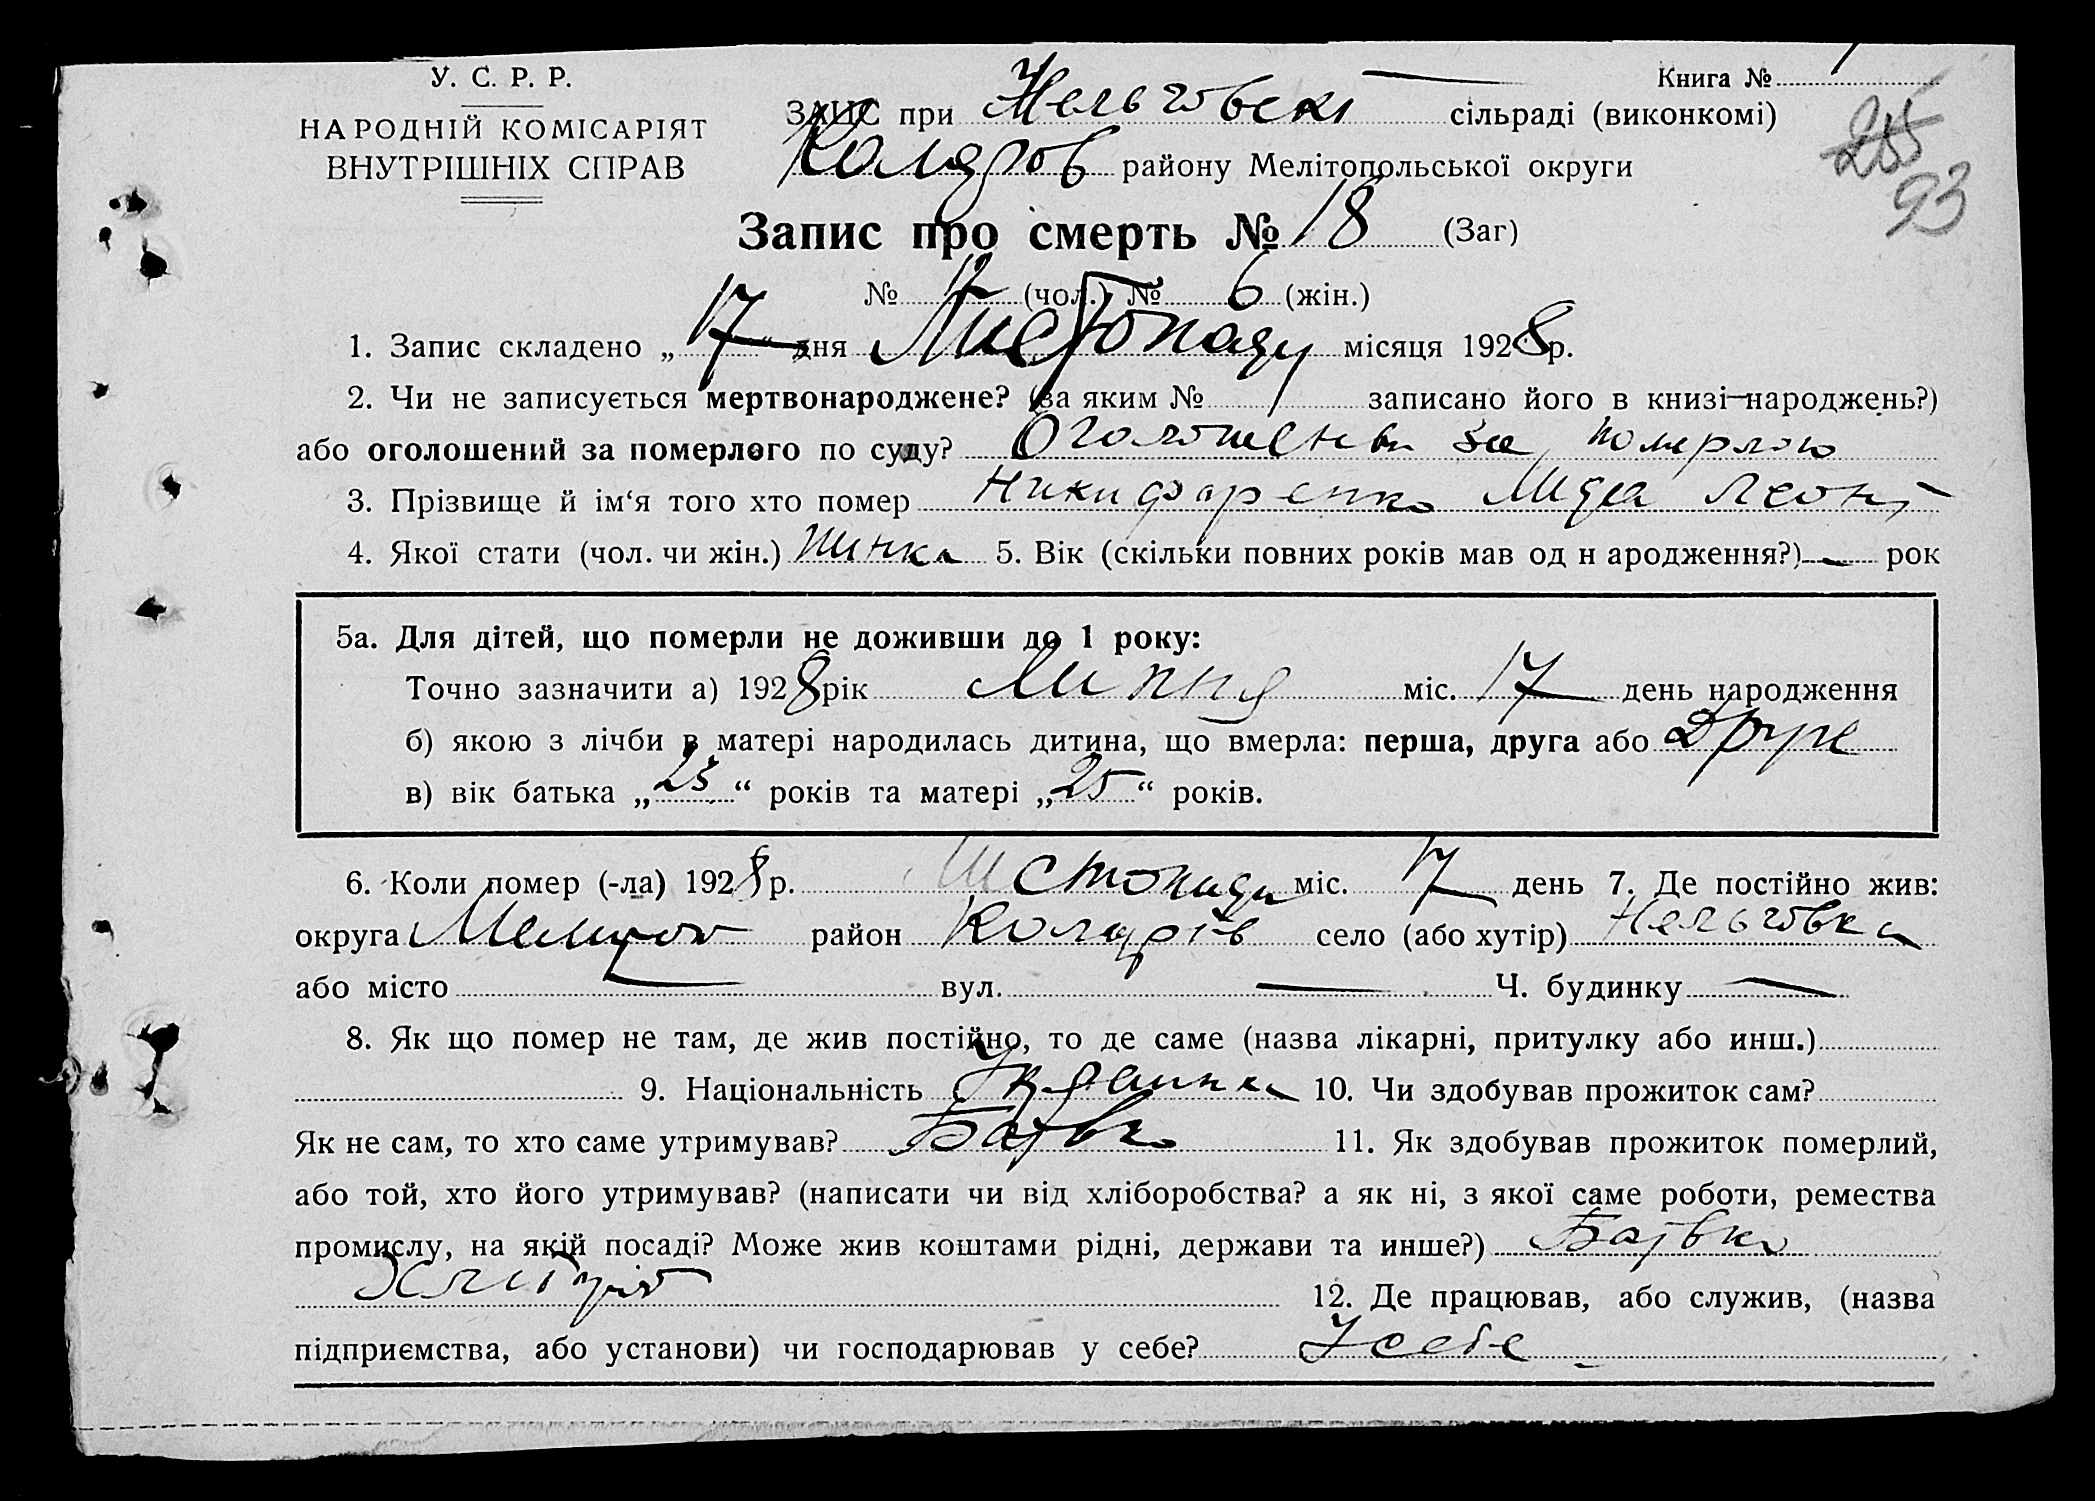 У. С. Р. Р.
НАРОДНІЙ КОМІСАРІЯТ
ВНУТРІШНІХ СПРАВ
Книга №
ЗАПИС при Нельговскі сільраді (виконкомі)
255
93
Коляров району Мелітопольської округи
Запис про смерть № 18 (Заг)
№ 12 (чол.) № 6 (жін.)
1. Запис складено „17“ дня Листопаду місяця 1928 р.
2. Чи не записується мертвонароджене? (за яким № записано його в книзі народжень?)
або оголошений за померлого по суду? Оголошений за померлою
3. Прізвище й ім‘я того хто помер Никифаренко Лида Леоні
4. Якої стати (чол. чи жін.) Жинка 5. Вік (скільки повних років мав од н ародження?) — рок
5а. Для дітей, що померли не доживши до 1 року:
Точно зазначити а) 1928 рік Липня міс. 17 день народження
б) якою з лічби в матері народилась дитина, що вмерла: перша, друга або Друге
в) вік батька „23“ років та матері „25“ років.
6. Коли помер (-ла) 1928 р. Листопада міс. 17 день 7. Де постійно жив:
округа Мелитоп район Коляров село (або хутір) Нельговка
або місто — вул. — Ч. будинку —
8. Як що помер не там, де жив постійно, то де саме (назва лікарні, притулку або инш.)
9. Національність Украинка 10. Чи здобував прожиток сам?
Як не сам, то хто саме утримував? Батько 11. Як здобував прожиток померлий,
або той, хто його утримував? (написати чи від хліборобства? а як ні, з якої саме роботи, ремества
промислу, на якій посаді? Може жив коштами рідні, держави та инше?) Батько
Хлибороб 12. Де працював, або служив, (назва
підприємства, або установи) чи господарював у себе? У себе